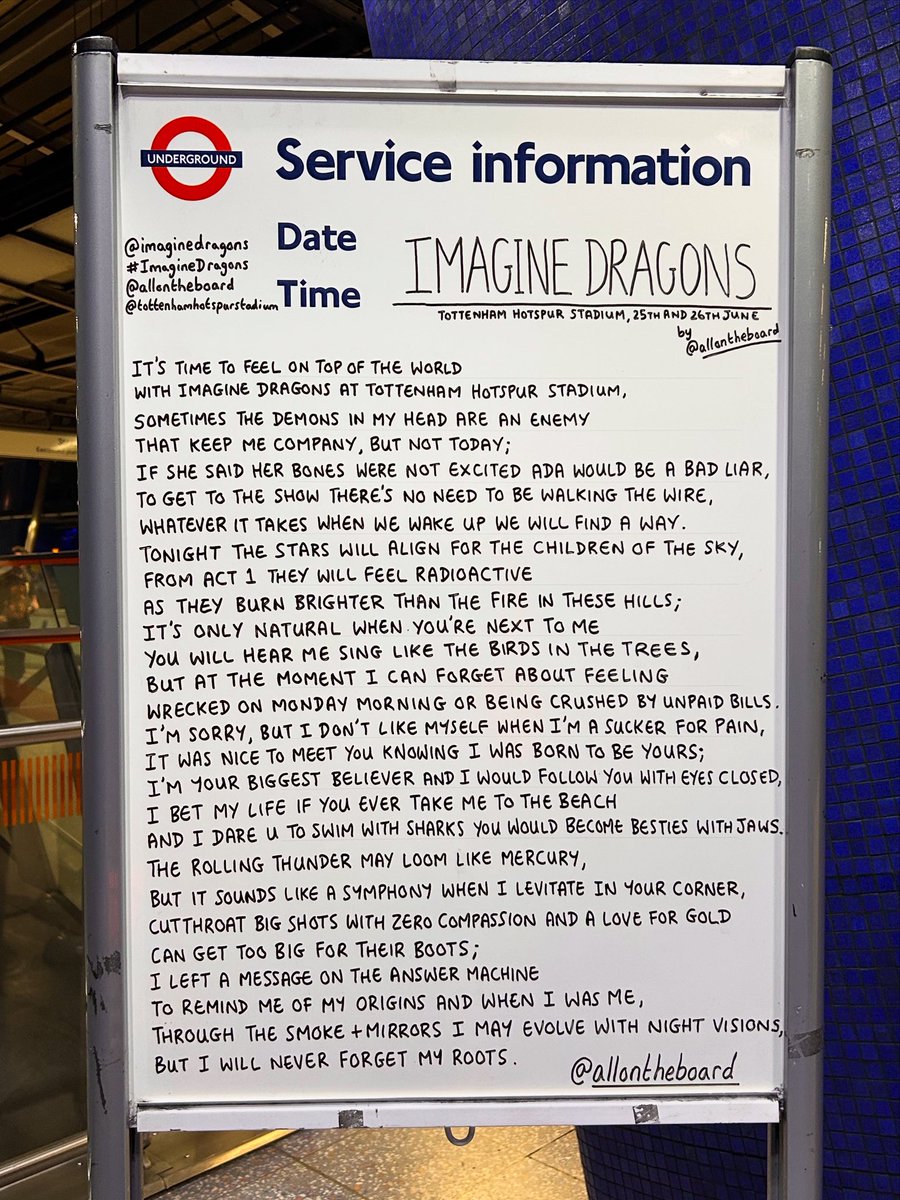 UNDERGROUND
Service information
@imaginedragons
#ImagineDragons
@allontheboard
@tottenhamhotspurstadium
Date
Time
IMAGINE DRAGONS
TOTTENHAM HOTSPUR STADIUM, 25TH AND 26TH JUNE
by
@allontheboard
IT'S TIME TO FEEL ON TOP OF THE WORLD
WITH IMAGINE DRAGONS AT TOTTENHAM HOTSPUR STADIUM,
SOMETIMES THE DEMONS IN MY HEAD ARE AN ENEMY
THAT KEEP ME COMPANY, BUT NOT TODAY;
IF SHE SAID HER BONES WERE NOT EXCITED ADA WOULD BE A BAD LIAR,
TO GET TO THE SHOW THERE'S NO NEED TO BE WALKING THE WIRE,
WHATEVER IT TAKES WHEN WE WAKE UP WE WILL FIND A WAY.
TONIGHT THE STARS WILL ALIGN FOR THE CHILDREN OF THE SKY,
FROM ACT 1 THEY WILL FEEL RADIOACTIVE
AS THEY BURN BRIGHTER THAN THE FIRE IN THESE HILLS;
IT'S ONLY NATURAL WHEN YOU'RE NEXT TO ME
YOU WILL HEAR ME SING LIKE THE BIRDS IN THE TREES,
BUT AT THE MOMENT I CAN FORGET ABOUT FEELING
WRECKED ON MONDAY MORNING OR BEING CRUSHED BY UNPAID BILLS.
I'M SORRY, BUT I DON'T LIKE MYSELF WHEN I'M A SUCKER FOR PAIN,
IT WAS NICE TO MEET YOU KNOWING I WAS BORN TO BE YOURS;
I'M YOUR BIGGEST BELIEVER AND I WOULD FOLLOW YOU WITH EYES CLOSED,
I BET MY LIFE IF YOU EVER TAKE ME TO THE BEACH
AND I DARE U TO SWIM WITH SHARKS YOU WOULD BECOME BESTIES WITH JAWS.
THE ROLLING THUNDER MAY LOOM LIKE MERCURY,
BUT IT SOUNDS LIKE A SYMPHONY WHEN I LEVITATE IN YOUR CORNER,
CUTTHROAT BIG SHOTS WITH ZERO COMPASSION AND A LOVE FOR GOLD
CAN GET TOO BIG FOR THEIR BOOTS;
I LEFT A MESSAGE ON THE ANSWER MACHINE
TO REMIND ME OF MY ORIGINS AND WHEN I WAS ME,
THROUGH THE SMOKE + MIRRORS I MAY EVOLVE WITH NIGHT VISIONS,
BUT I WILL NEVER FORGET MY ROOTS.
@allontheboard